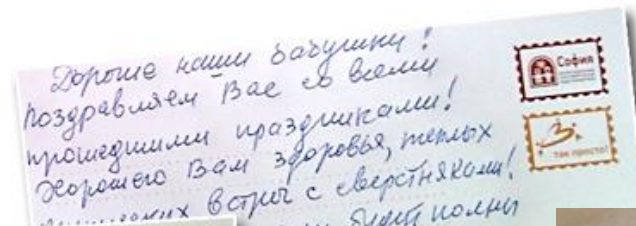 Дорогие наши бабушки!
Поздравляем Вас со всеми
прошедшими праздниками!
Хорошего Вам здоровья, теплых
встреч с сверстниками!
будет полны
София
так просто!